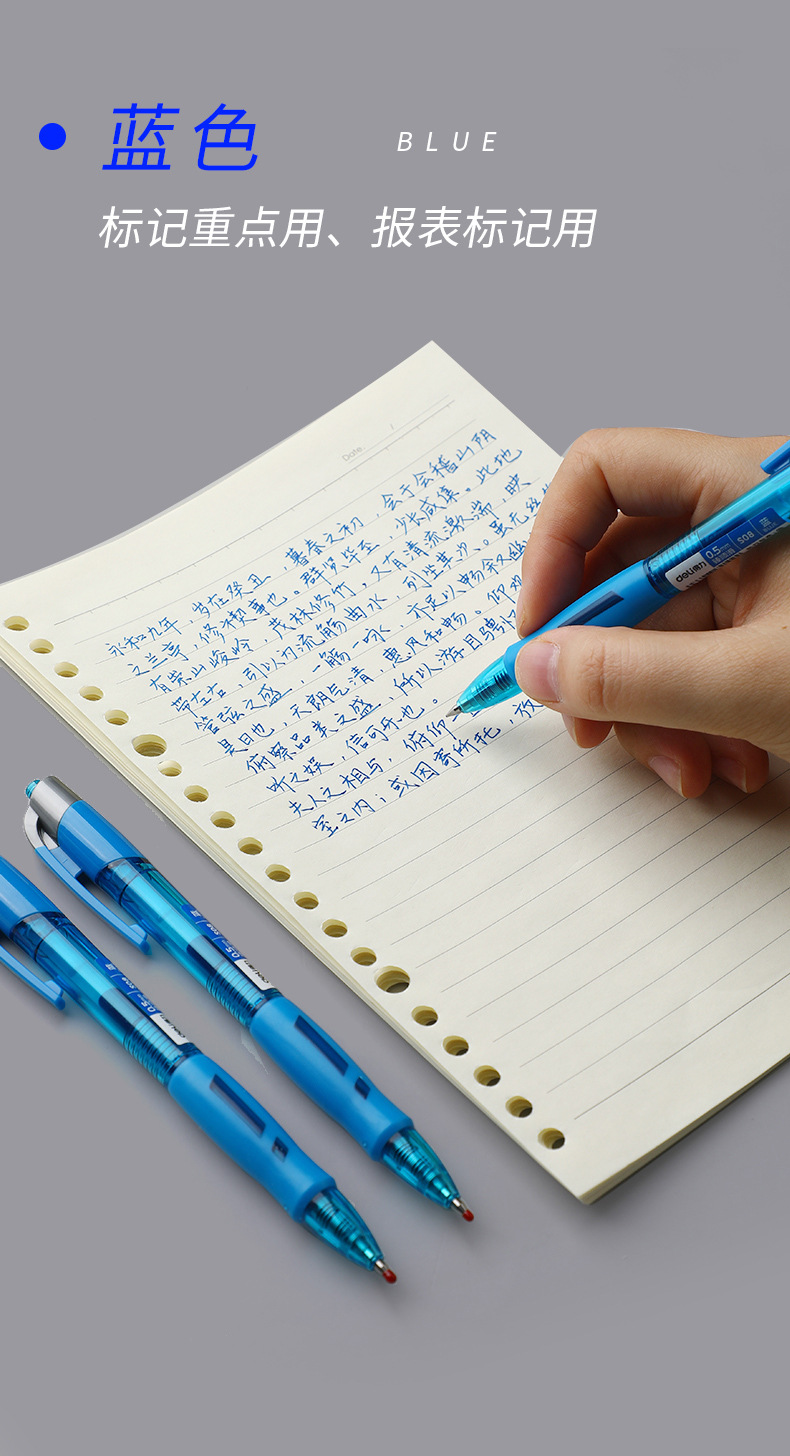 蓝色
BLUE
标记重点用、报表标记用
Date /
永和九年，岁在癸丑，暮春之初，会于会稽山阴
之兰亭，修禊事也。群贤毕至，少长咸集。此地
有崇山峻岭，茂林修竹，又有清流激湍，映
带左右，引以为流觞曲水，列坐其次。虽无丝竹
管弦之盛，一觞一咏，亦足以畅叙幽
是日也，天朗气清，惠风和畅。仰观
俯察品类之盛，所以游目骋怀
听之娱，信可乐也。
夫人之相与，俯仰
室之内；或因寄所托，放
deli得力 0.5mm S08 蓝
deli得力 0.5mm S08 蓝
deli得力 0.5mm S08 蓝